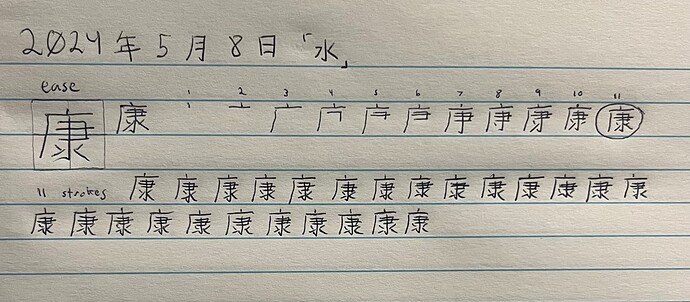 2024年5月8日「水」
ease 1 2 3 4 5 6 7 8 9 10 11
康 康 丶 亠 广 康
11 strokes 康 康 康 康 康 康 康 康 康 康 康 康 康 康
康 康 康 康 康 康 康 康 康 康 康